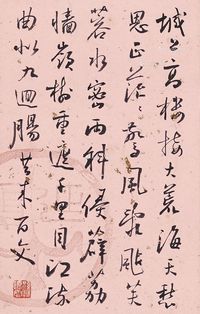 城上高樓接大荒海天愁
思正茫〻驚風亂颭芙
蓉水密雨斜侵薜荔
牆嶺樹重遮千里目江流
曲似九迴腸共來百文